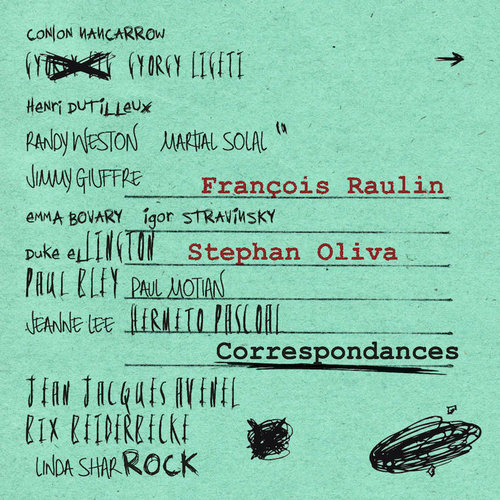 CONLON NANCARROW
GYORGY LIGETI
Henri DUTILLEUX
RANDY WESTON MARTIAL SOLAL
JIMMY GIUFFRE
François Raulin
EMMA BOVARY igor STRAVINSKY
DUKE eLLINGTON
Stephan Oliva
PAUL BLEY PAUL MOTIAN
JEANNE LEE HERMETO PASCOAL
Correspondances
JEAN JACQUES AVENEL
BIX BEIDERBECKE
LINDA SHARROCK